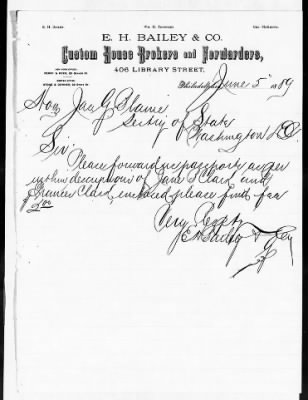 E. H. BAILEY & CO.
Custom House Brokers and Forwarders,
408 LIBRARY STREET,
Philadelphia, June 5" 1889
Hon Jas G Blaine
Sectry of State
Washington D.C.
Sir
Please forward me passports as per
within descriptions of Jane S Clark and
Frances Clark enclosed please find fee
Very Respty
E H Bailey & Co